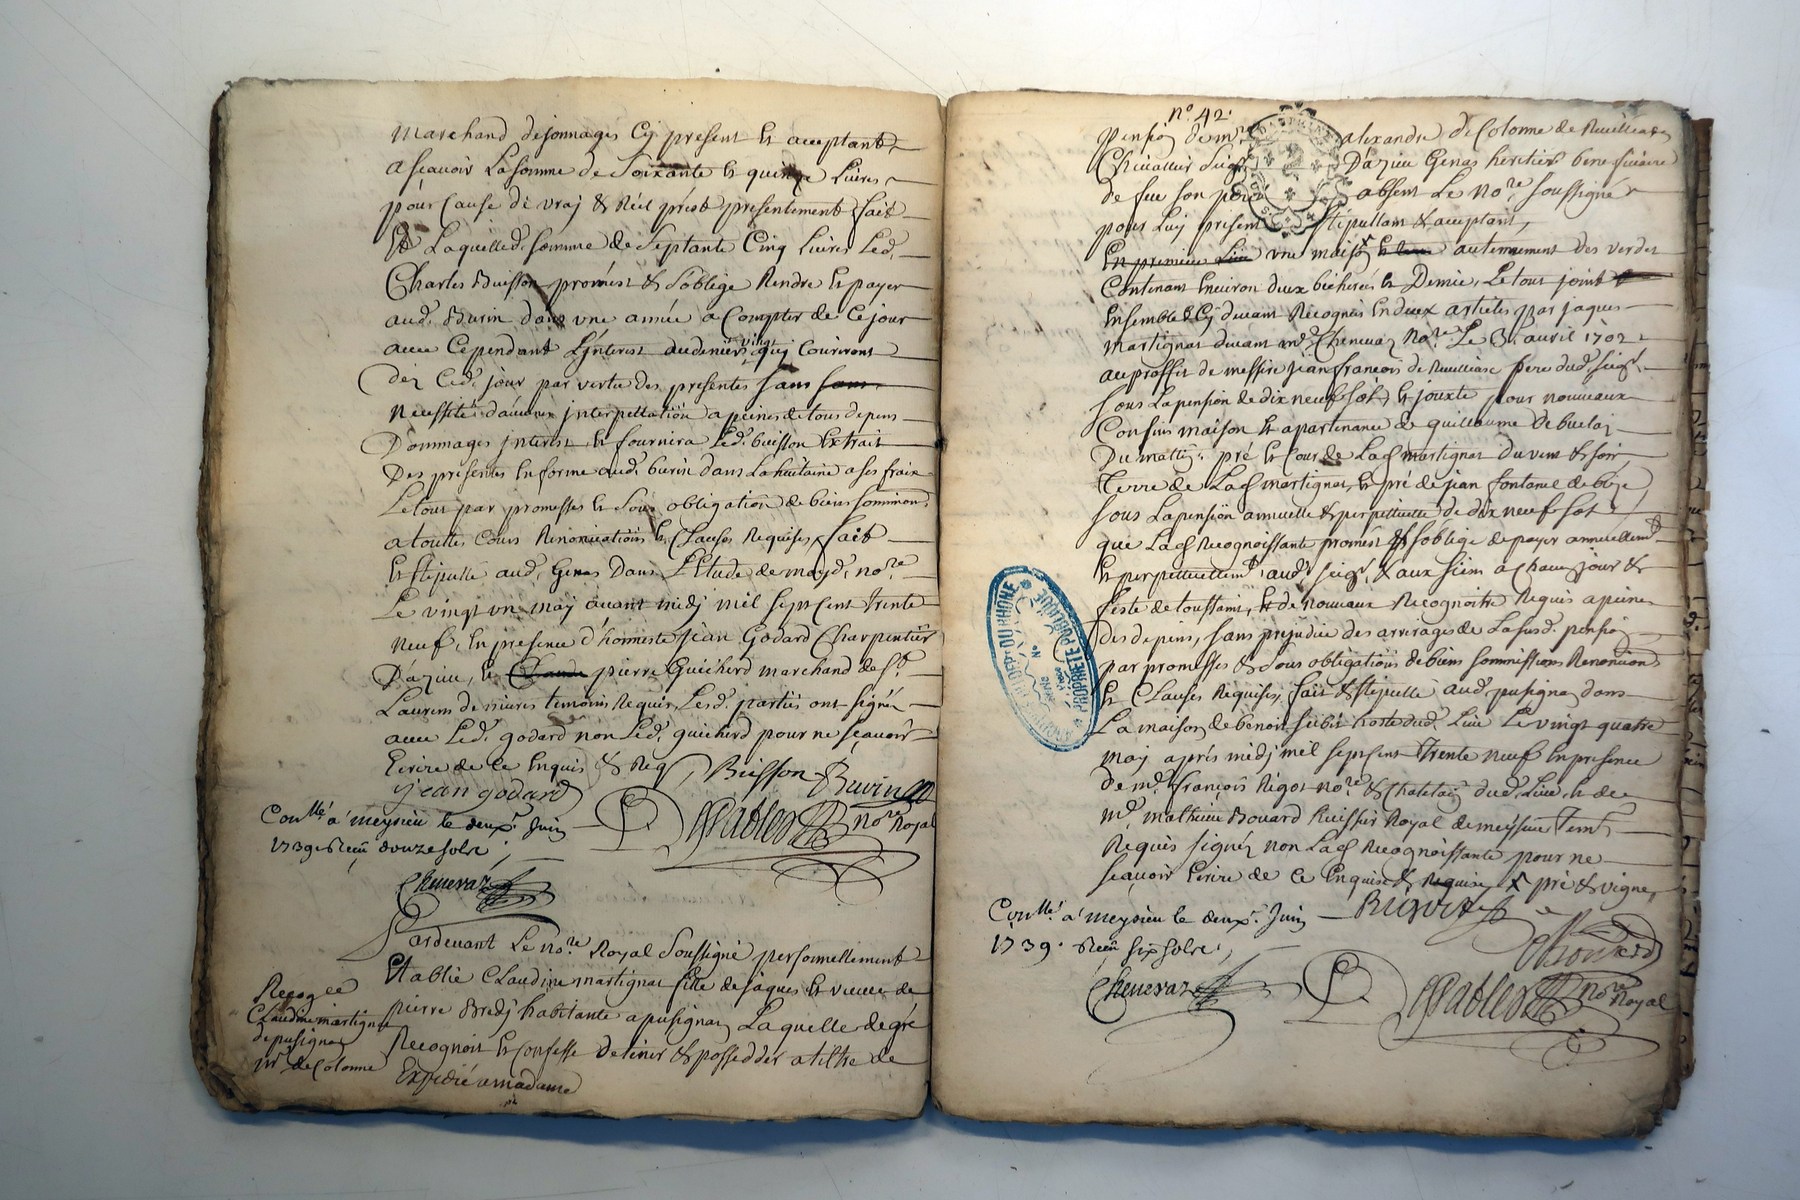 Marchand dejonnages Cy present et acceptant
a Sçavoir La somme de Soixante et quinze Livres
pour Cause de vraj & Réél prést presentement fait
Laquelle d. somme de Septante Cinq Livres Led.
Charles Buisson promest & s'oblige Rendre et payer
aud. Burin dans une année a Compter de Ce jour
avec Cependant L'jnterest au denier vingt quj Courront
déz Ced. jour par vertu des presentes sans
Necessité d'aucune jnterpellation a peines de tous depens
Dommages jnterest et fournira Led. buisson Extrait
Des présentes En forme aud. burin dans La huitaine a ses fraix
Le tout par promesses et Sous obligation de biens Sommions
a touttes Cours Renonciations & Clauses Requises, fait
Et stipullé aud. Genas Dans L'Etude de moyd. no.re
Le vingt un maj avant midj mil Sept Cent Trente
Neuf, En presence d'honneste jean Godard Charpentier
D'azieu, et Claude pierre Guicherd marchand de S.t
Laurens de mures temoins Requis Lesd. parties ont signé
avec Led. godard non Led. guicherd pour ne sçavoir
Ecrire de Ce Enquis & Req. Buisson Burin
jean godard
Con.llé a meysieu le deux.e Juin
1739 Recu douze sols
no.re Royal
Chenevaz
Pardevant Le no.re Royal Soussigné personnellement
Etablie Claudine martignat fille de jaques et vieuve de
pierre Bredj habitante a pusignan Laquelle de gré
Recognoit et Confesse detenir & possedder a tiltre de
Recog.ce
Claudine martignat
de pusignan
M.r de Colonne
Expedié a madame
n.º 42.
Pension de m.re alexandre de Colonne de
Chevallier Seig.r D'azieu Genas heritier beneficiaire
de feu son pere absent Le no.re soussigné
pour Luy present stipullant & acceptant,
En premier Lieu une maison et au ternement des verdet
Contenant Environ deux bicherés et Demie, Le tout joint
Ensemble & Cy devant Recognus En deux articles par jaques
Martignat devant m.e Chenevaz No.re Le 3. avril 1702
au proffit de messire jean françois de Revilliasc pere dud. seig.r
sous La pension de dix neuf sols et jouxte pour nouveaux
Confins maison et apartenance de guillaume
Du mattin, pré et Cour de Lad. martignat du vent & soir,
Terre de Lad. martignat, et pré de jean fontanel de bize
sous La pension annuelle & perpettuelle de dix neuf sols
que Lad. Recognoissante promest & s'oblige de payer annuellem.t
et perpettuellem.t aud. seig.r & aux siens a Chaque jour &
feste de toussaint, et de nouveaux Recognoitre Requis a peine
des depens, sans prejudice des arrerages de La susd. pension
par promesses & Sous obligations de biens sommissions Renontions
Et Clauses Requises, fait & stipullé aud. pusignan dans
La maison de benoit hoste dud. Lieu Le vingt quatre
Maj aprés midj mil Sept Cent Trente neuf En presence
de m.e françois Rigot no.re & Chatelain dud. Lieu et de
m.e mathieu Bovard huissier Royal de meysieu Tem.s
Requis signéz non Lad. Recognoissante pour ne
sçavoir Ecrire de Ce Enquise & Requise, pré & vigne
Con.llé a meysieu le deux.e Juin
1739. Recu six sols
Chenevaz
no.re Royal
PROPRIETE PUBLIQUE
DU RHONE